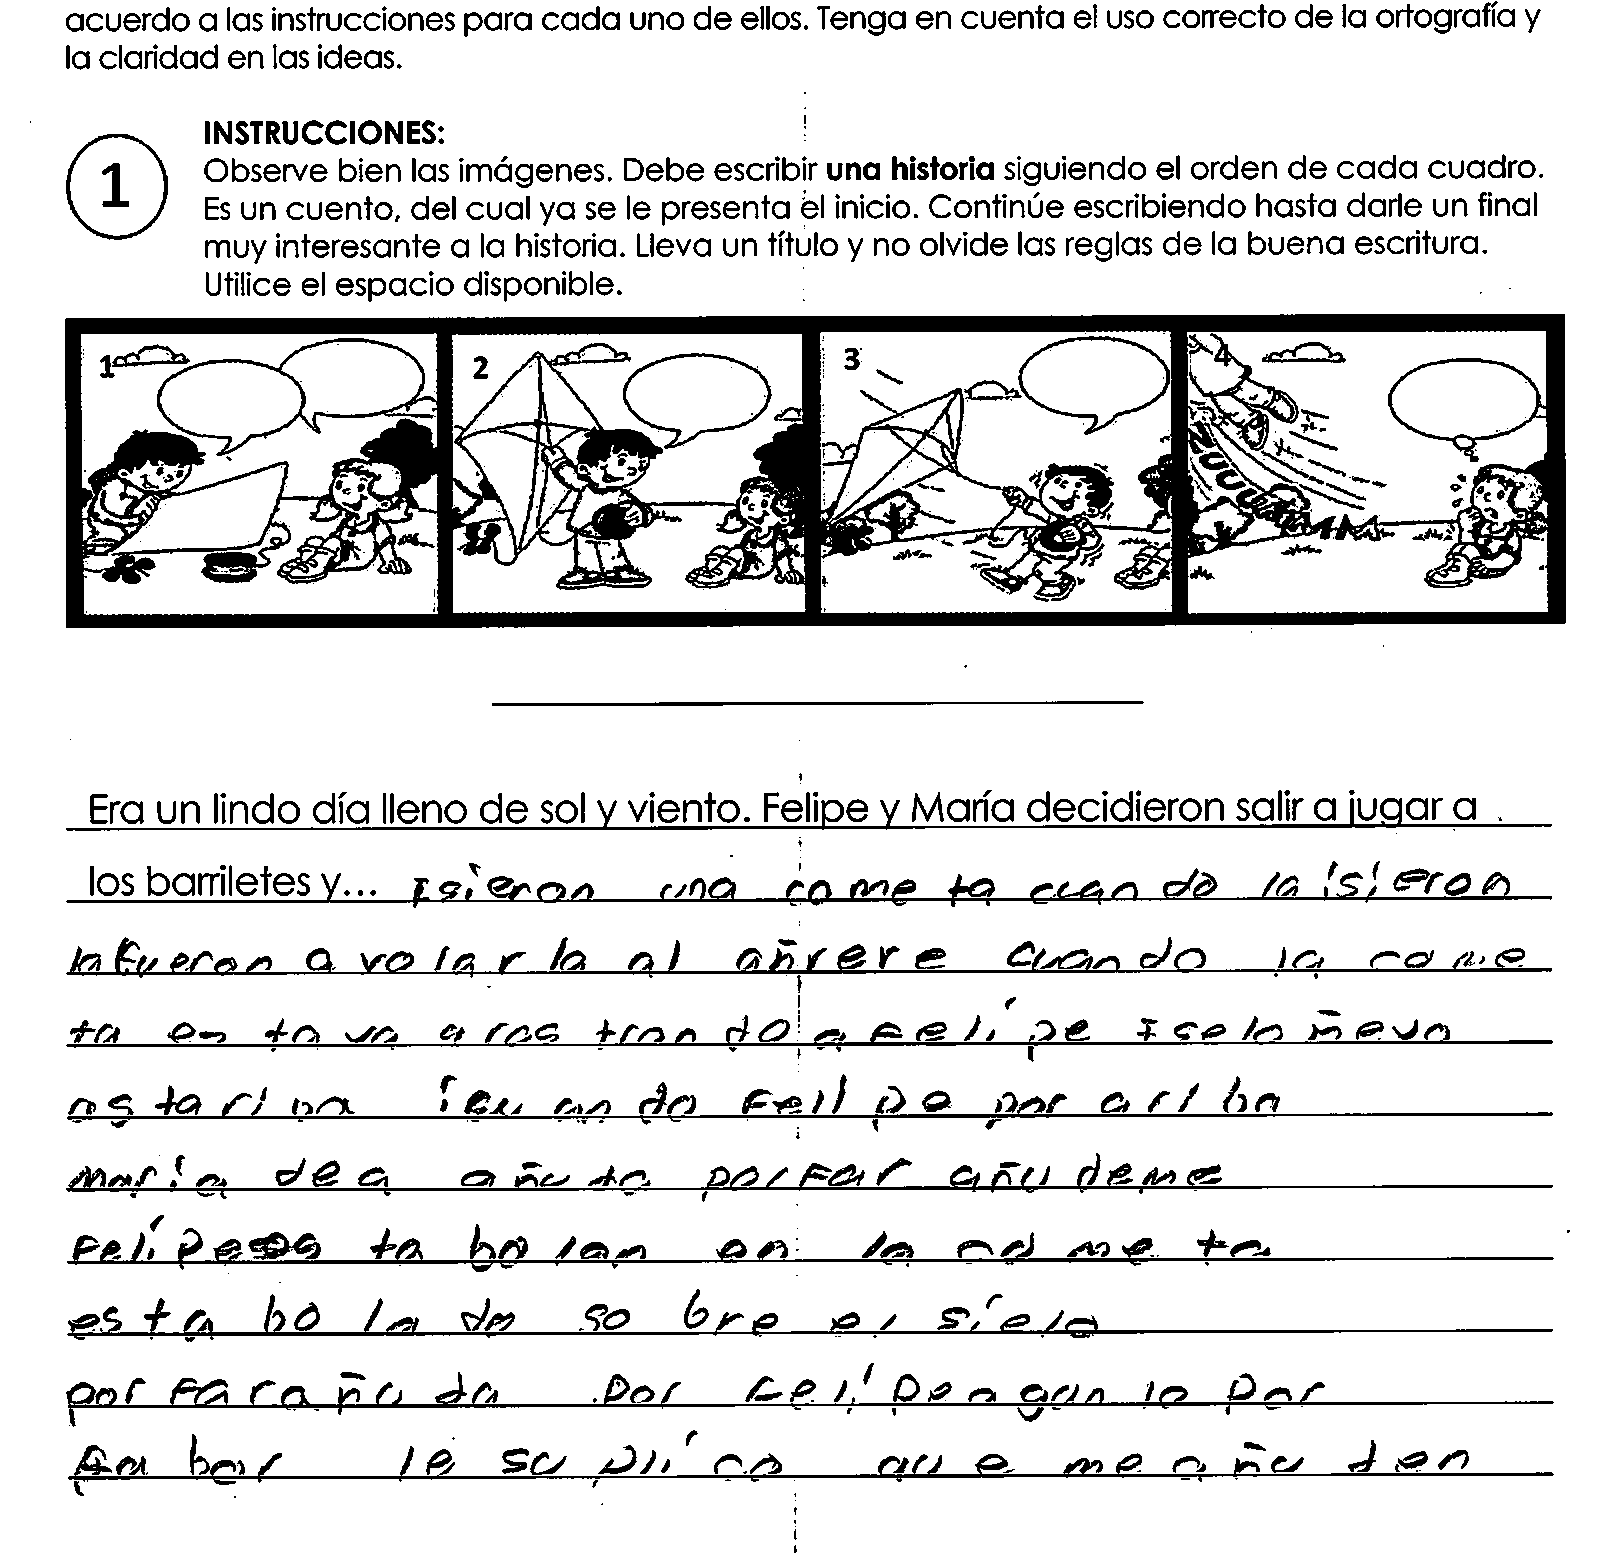 acuerdo a las instrucciones para cada uno de ellos. Tenga en cuenta el uso correcto de la ortografía y
la claridad en las ideas.
INSTRUCCIONES:
1
Observe bien las imágenes. Debe escribir una historia siguiendo el orden de cada cuadro.
Es un cuento, del cual ya se le presenta el inicio. Continúe escribiendo hasta darle un final
muy interesante a la historia. Lleva un título y no olvide las reglas de la buena escritura.
Utilice el espacio disponible.
1 2 3 4
ZUUUUMMM
Era un lindo día lleno de sol y viento. Felipe y María decidieron salir a jugar a
los barriletes y... Isieron una come ta cuan do la isieron
la fueron a volar la al añrere cuando la come
ta en ta va aras tran do a Felipe I se lo ñevo
as ta ri ba i cu an do Felipe por ari ba
María de a a ñu ta por far añu deme
Felipe ta bo lan en la co me ta
es ta bo la do so bre el sielo
por fa r a ñu da por Feli pe agan lo por
fa bor le su plico que me a ñu den